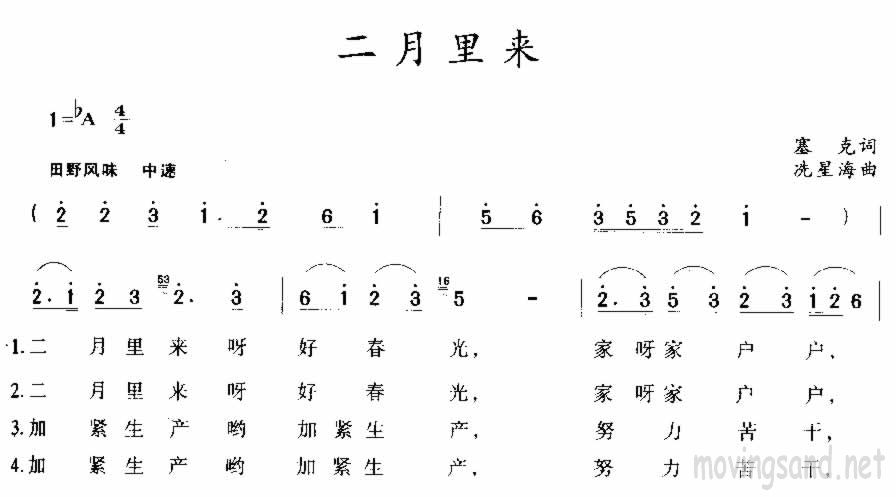 二月里来
1=♭A 4/4
塞 克词
田野风味 中速
冼星海曲
( 2 2 3 1. 2 6 1 | 5 6 3 5 3 2 1 - ) |
2. 1 2 3 53 2. 3 | 6 1 2 3 16 5 - | 2. 3 5 3 2 3 1 2 6
1.二 月里来呀 好 春 光， 家呀家 户 户，
2.二 月里来呀 好 春 光， 家呀家 户 户，
3.加 紧生产哟 加紧生 产， 努 力 苦 干，
4.加 紧生产哟 加紧生 产， 努 力 苦 干，
movingsand.net